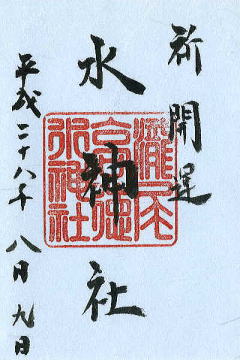 祈開運
水神社
平成二十八年八月九日
水神社